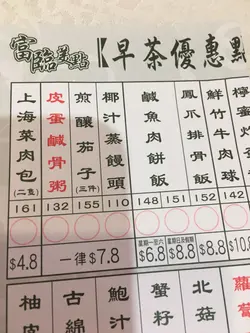 富臨美點
【早茶優惠點
上海菜肉包(二隻)
皮蛋鹹骨粥
煎釀茄子(三件)
椰汁蒸饅頭
鹹魚肉餅飯
鳳爪排骨飯
鮮竹牛
161 132 155 110 148 151 152
$4.8
一律$7.8
星期一至六
$6.8
星期日及假期
$8.8
$8.8
$10.8
柚皮
古綿
鮑汁
蟹籽
北菇
蘿蔔